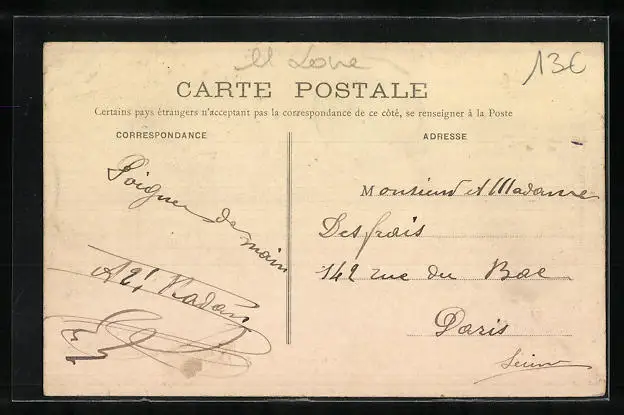 Loire
13€
CARTE POSTALE
Certains pays étrangers n'acceptant pas la correspondance de ce côté, se renseigner à la Poste
CORRESPONDANCE
ADRESSE
Poignée de main
Monsieur et Madame
Desfrais
142 rue du Bac
Paris
Seine